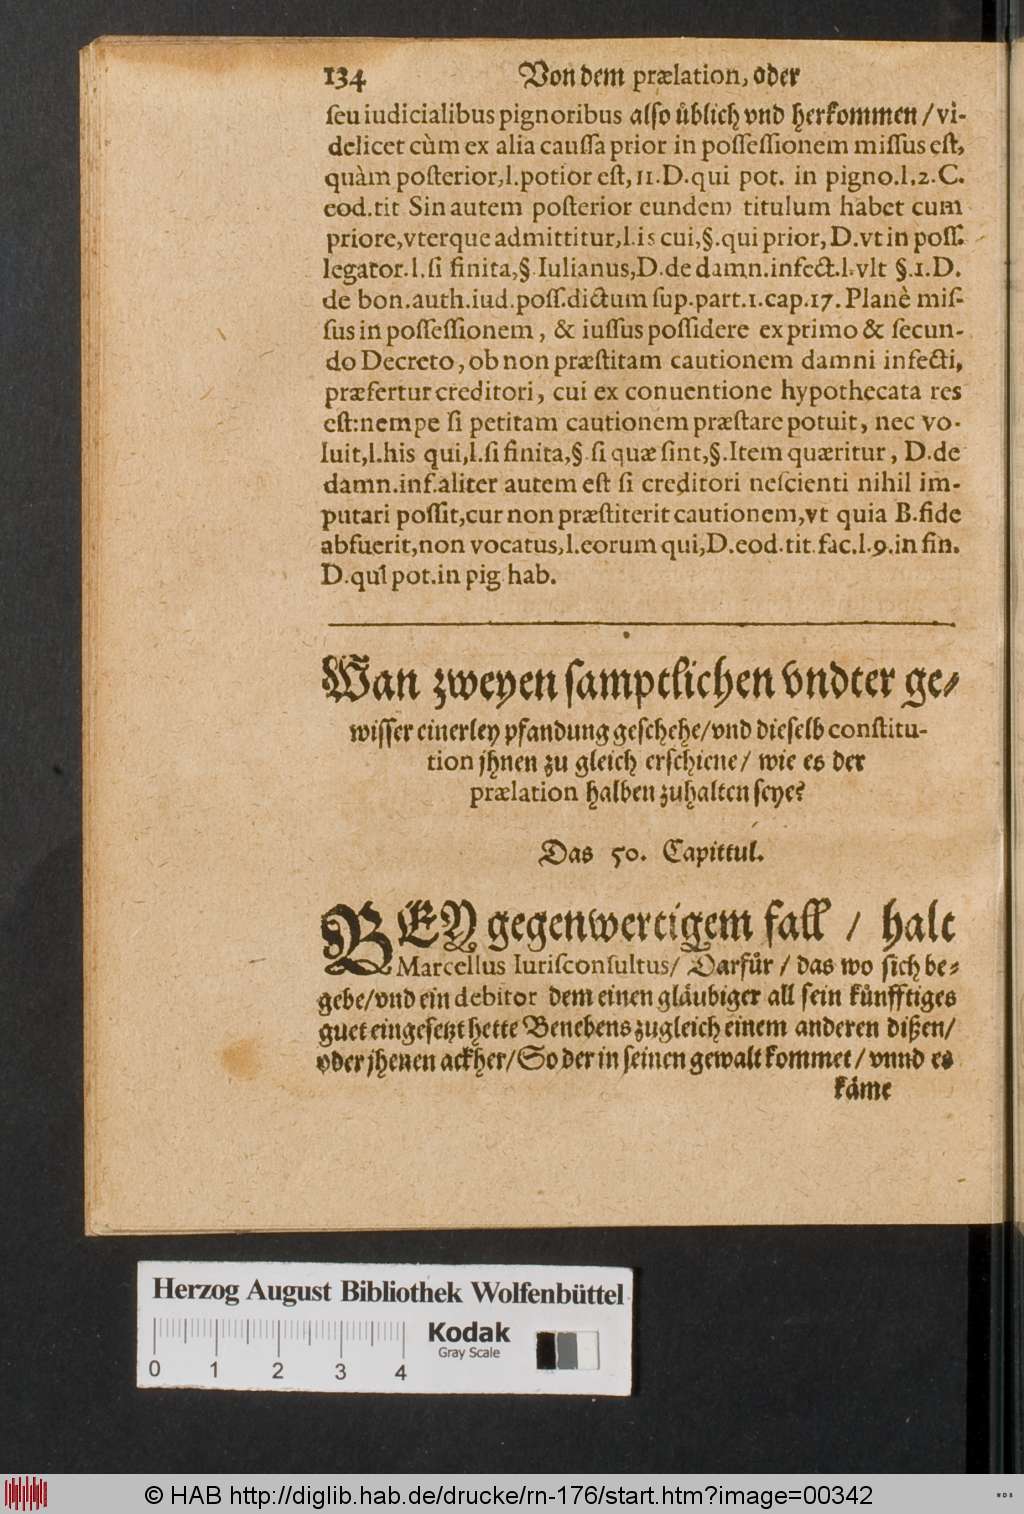 134 Von dem prælation, oder
ſeu iudicialibus pignoribus alſo uͤblich vnd herkommen / vi-
delicet cùm ex alia cauſſa prior in poſſeſſionem miſſus eſt,
quàm poſterior, l. potior eſt, 11. D. qui pot. in pigno. l. 2. C.
eod. tit Sin autem poſterior eundem titulum habet cum
priore, vterque admittitur, l. is cui, §. qui prior, D. vt in poſſ.
legator. l. ſi finita, §. Iulianus, D. de damn. infect. l. vlt §. 1. D.
de bon. auth. iud. poſſ. dictum ſup. part. 1. cap. 17. Planè miſ-
ſus in poſſeſſionem, & iuſſus poſſidere ex primo & ſecun-
do Decreto, ob non præſtitam cautionem damni infecti,
præfertur creditori, cui ex conuentione hypothecata res
eſt: nempe ſi petitam cautionem præſtare potuit, nec vo-
luit, l. his qui, l. ſi finita, §. ſi quæ ſint, §. Item quæritur, D. de
damn. inf. aliter autem eſt ſi creditori neſcienti nihil im-
putari poſſit, cur non præſtiterit cautionem, vt quia B. fide
abfuerit, non vocatus, l. eorum qui, D. eod. tit. fac. l. 9. in fin.
D. qui pot. in pig hab.
Wan zweyen ſamptlichen vndter ge-
wiſſer einerley pfandung geſchehe / vnd dieſelb conſtitu-
tion jhnen zu gleich erſchiene / wie es der
prælation halben zuhalten ſeye?
Das 50. Capittul.
BEY gegenwertigem fall / halt
Marcellus Iuriſconſultus / Darfuͤr / das wo ſich be-
gebe / vnd ein debitor dem einen glaͤubiger all ſein kuͤnfftiges
guet eingeſetzt hette Benebens zugleich einem anderen dißen /
oder jhenen ackher / So der in ſeinen gewalt kommet / vnnd es
kaͤme
Herzog August Bibliothek Wolfenbüttel
0 1 2 3 4
Kodak
Gray Scale
© HAB http://diglib.hab.de/drucke/rn-176/start.htm?image=00342